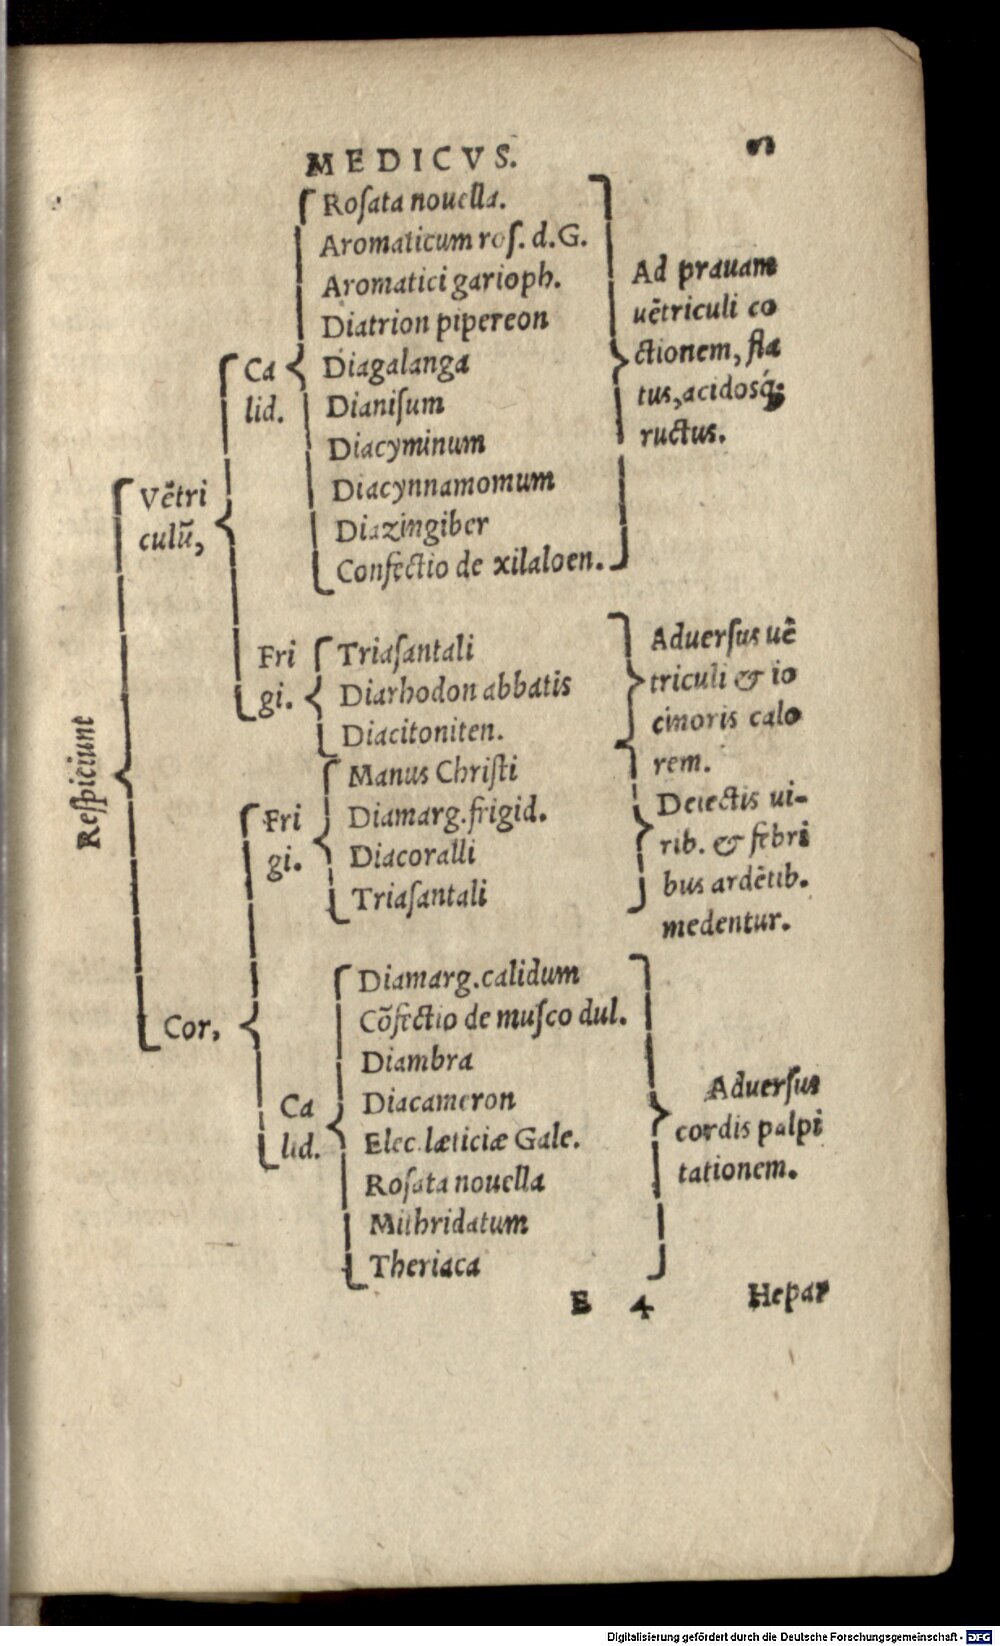 MEDICVS.
Roſata nouella.
Aromaticum roſ. d.G.
Aromatici garioph.
Diatrion pipereon
Ca
lid.
Diagalanga
Dianiſum
Diacyminum
Diacynnamomum
Diazingiber
Confectio de xilaloen.
Ad prauam
uẽtriculi co
ctionem, fla
tus, acidosq́;
ructus.
Vẽtri
culũ,
Fri
gi.
Triaſantali
Diarhodon abbatis
Diacitoniten.
Aduerſus uẽ
triculi & io
cinoris calo
rem.
Reſpiciunt
Fri
gi.
Manus Chriſti
Diamarg.frigid.
Diacoralli
Triaſantali
Deiectis ui-
rib. & febri
bus ardẽtib.
medentur.
Cor,
Ca
lid.
Diamarg.calidum
Cõfectio de muſco dul.
Diambra
Diacameron
Elec.læticiæ Gale.
Roſata nouella
Mithridatum
Theriaca
Aduerſus
cordis palpi
tationem.
E 4
Hepar
Digitalisierung gefördert durch die Deutsche Forschungsgemeinschaft - DFG